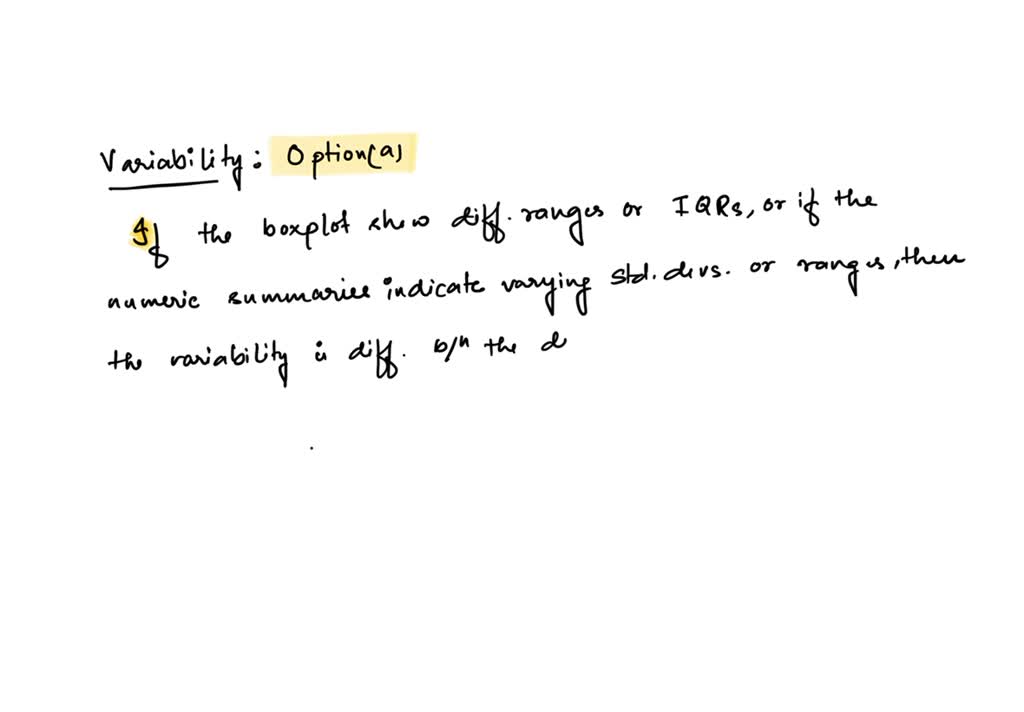 Variability : Option(a)
If the boxplot show diff. ranges or IQRs, or if the
numeric summaries indicate varying std. devs. or ranges, then
the variability is diff. b/n the d